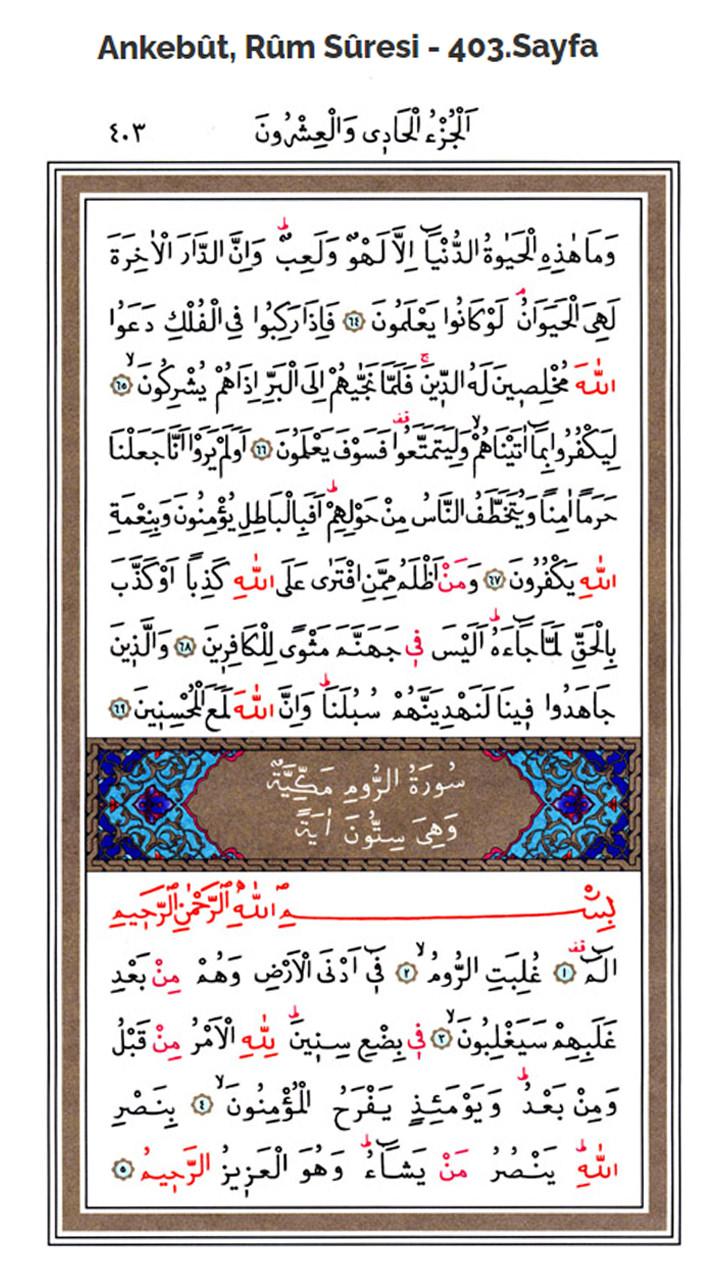 Ankebût, Rûm Sûresi - 403.Sayfa
اَلْجُزْءُ الْحَادِى وَالْعِشْرُونَ ٤٠٣
وَمَا هٰذِهِ الْحَيٰوةُ الدُّنْيَٓا اِلَّا لَهْوٌ وَلَعِبٌۜ وَاِنَّ الدَّارَ الْاٰخِرَةَ
لَهِىَ الْحَيَوَانُۢ لَوْ كَانُوا يَعْلَمُونَ ﴿٦٤﴾ فَاِذَا رَكِبُوا فِى الْفُلْكِ دَعَوُا
اللّٰهَ مُخْلِصِينَ لَهُ الدِّينَۚ فَلَمَّا نَجّٰيهُمْ اِلَى الْبَرِّ اِذَا هُمْ يُشْرِكُونَۙ ﴿٦٥﴾
لِيَكْفُرُوا بِمَٓا اٰتَيْنَاهُمْۙ وَلِيَتَمَتَّعُوا۠ فَسَوْفَ يَعْلَمُونَ ﴿٦٦﴾ اَوَلَمْ يَرَوْا اَنَّا جَعَلْنَا
حَرَمًا اٰمِنًا وَيُتَخَطَّفُ النَّاسُ مِنْ حَوْلِهِمْۜ اَفَبِالْبَاطِلِ يُؤْمِنُونَ وَبِنِعْمَةِ
اللّٰهِ يَكْفُرُونَ ﴿٦٧﴾ وَمَنْ اَظْلَمُ مِمَّنِ افْتَرٰى عَلَى اللّٰهِ كَذِبًا اَوْ كَذَّبَ
بِالْحَقِّ لَمَّا جَٓاءَهُۜ اَلَيْسَ فِى جَهَنَّمَ مَثْوًى لِلْكَافِرِينَ ﴿٦٨﴾ وَالَّذِينَ
جَاهَدُوا فِينَا لَنَهْدِيَنَّهُمْ سُبُلَنَاۜ وَاِنَّ اللّٰهَ لَمَعَ الْمُحْسِنِينَ ﴿٦٩﴾
سُورَةُ الرُّومِ مَكِّيَّةٌ
وَهِىَ سِتُّونَ اٰيَةً
بِسْمِ اللّٰهِ الرَّحْمٰنِ الرَّحِيمِ
الٓمٓ ﴿١﴾ غُلِبَتِ الرُّومُۙ ﴿٢﴾ فِٓى اَدْنَى الْاَرْضِ وَهُمْ مِنْ بَعْدِ
غَلَبِهِمْ سَيَغْلِبُونَۙ ﴿٣﴾ فِى بِضْعِ سِنِينَۜ لِلّٰهِ الْاَمْرُ مِنْ قَبْلُ
وَمِنْ بَعْدُۜ وَيَوْمَئِذٍ يَفْرَحُ الْمُؤْمِنُونَۙ ﴿٤﴾ بِنَصْرِ
اللّٰهِۜ يَنْصُرُ مَنْ يَشَٓاءُۜ وَهُوَ الْعَزِيزُ الرَّحِيمُ ﴿٥﴾